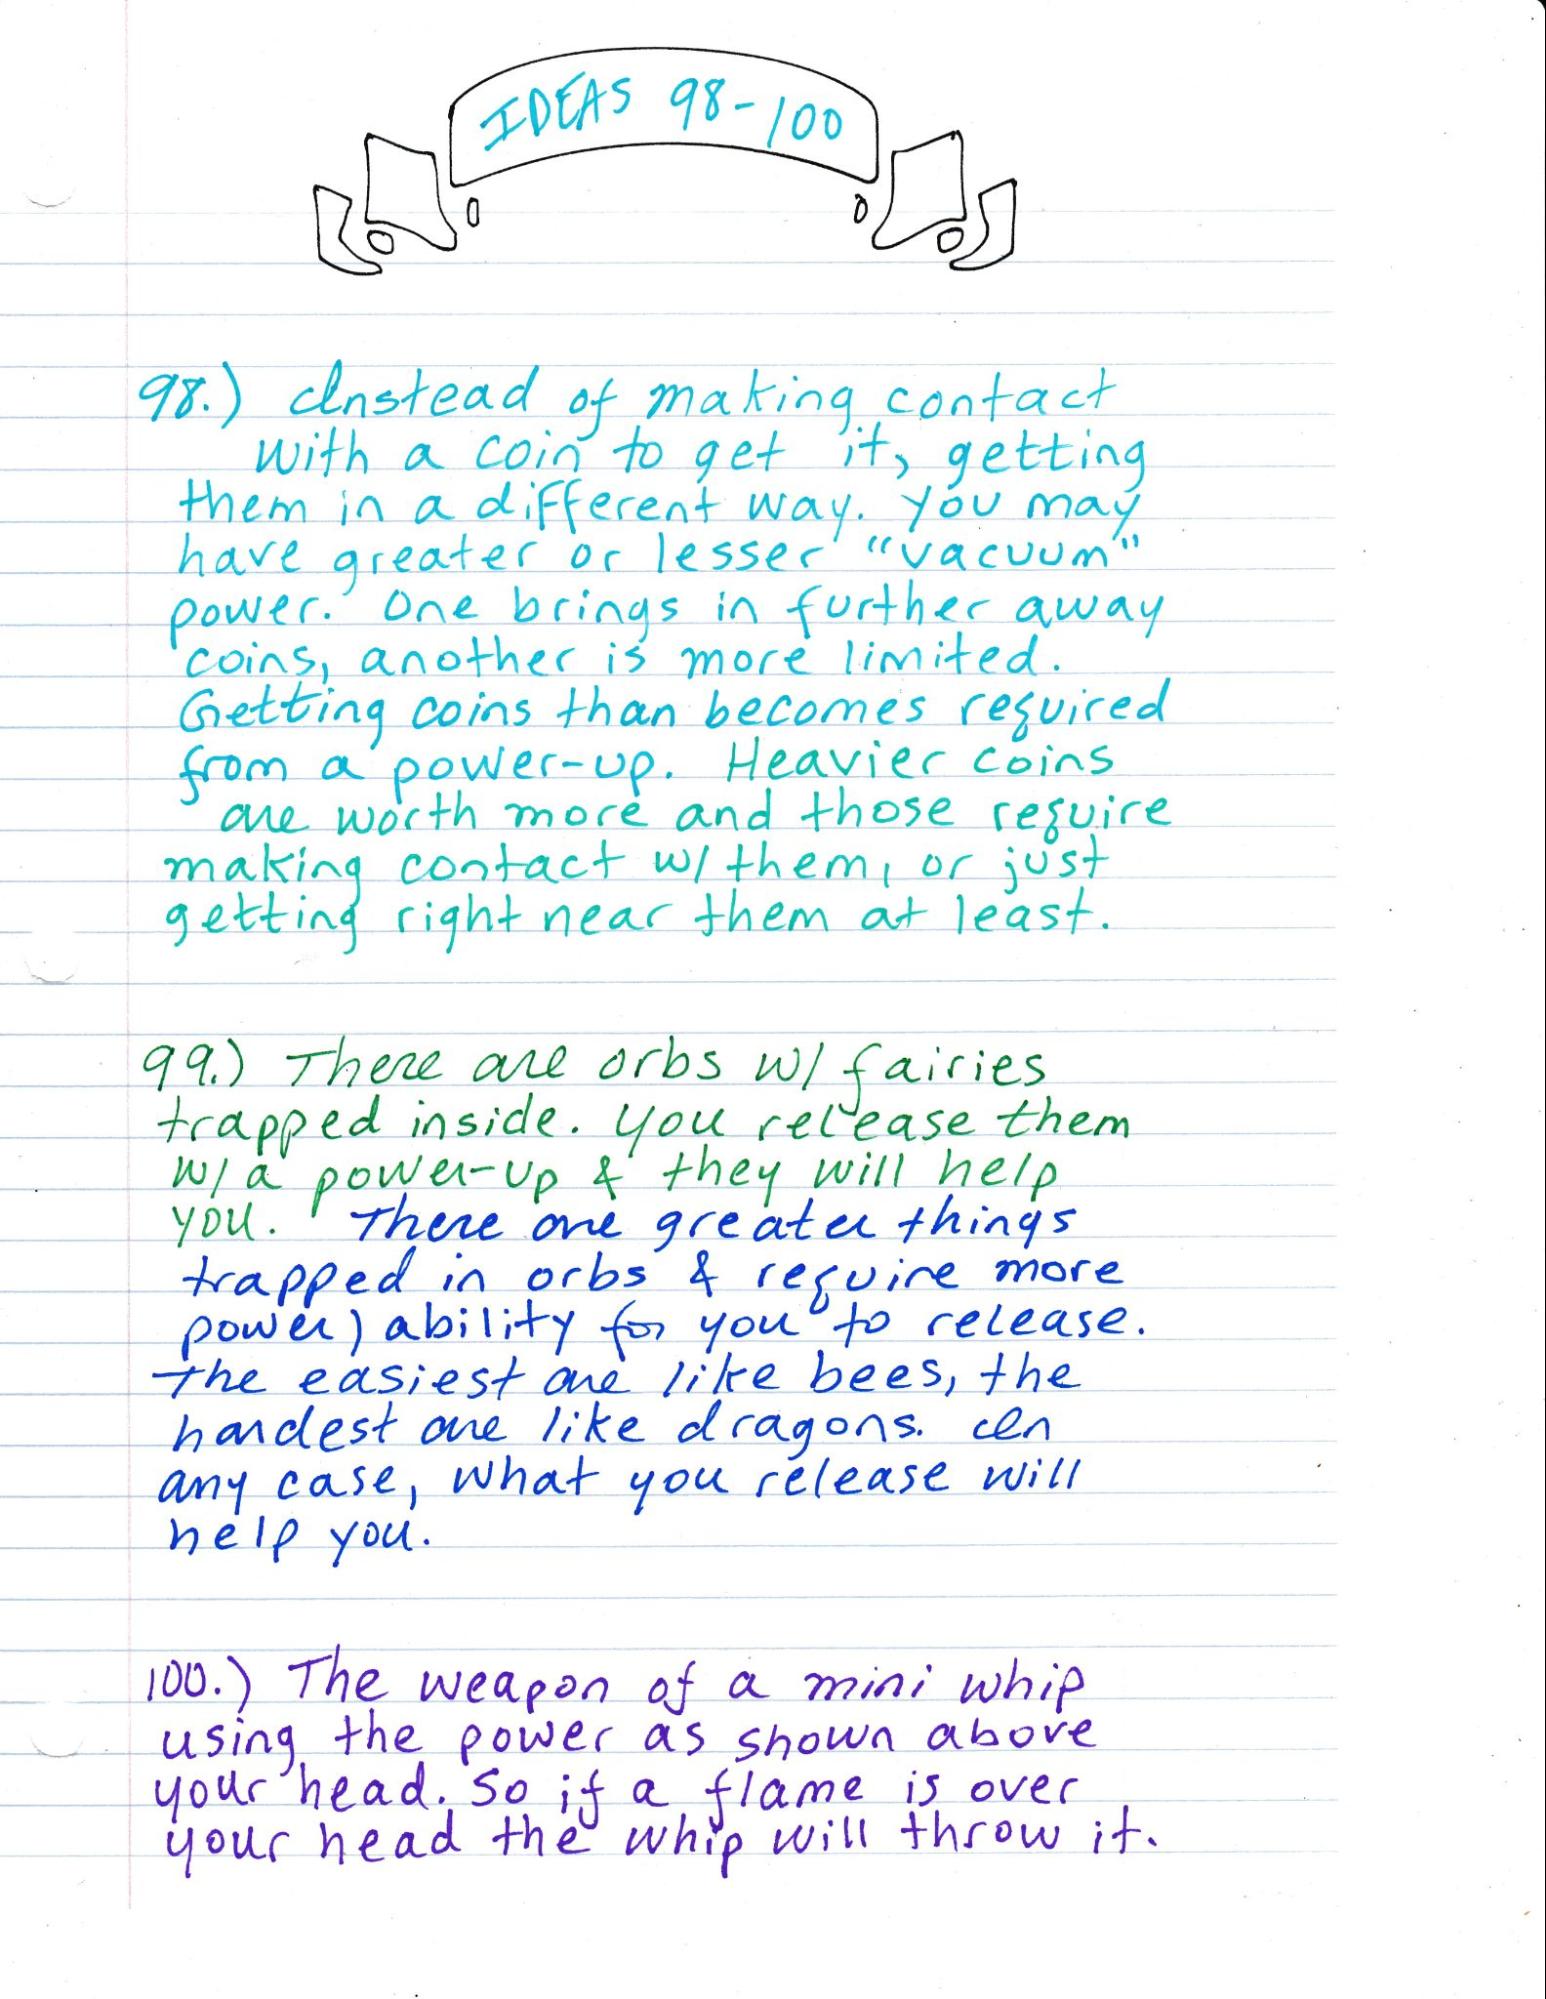 IDEAS 98-100
98.) Instead of making contact
with a coin to get it, getting
them in a different way. You may
have greater or lesser "vacuum"
power. One brings in further away
coins, another is more limited.
Getting coins than becomes required
from a power-up. Heavier coins
are worth more and those require
making contact w/ them, or just
getting right near them at least.
99.) There are orbs w/ fairies
trapped inside. You release them
w/ a power-up & they will help
you. There are greater things
trapped in orbs & require more
power) ability for you to release.
The easiest are like bees, the
hardest are like dragons. In
any case, what you release will
help you.
100.) The weapon of a mini whip
using the power as shown above
your head. So if a flame is over
your head the whip will throw it.